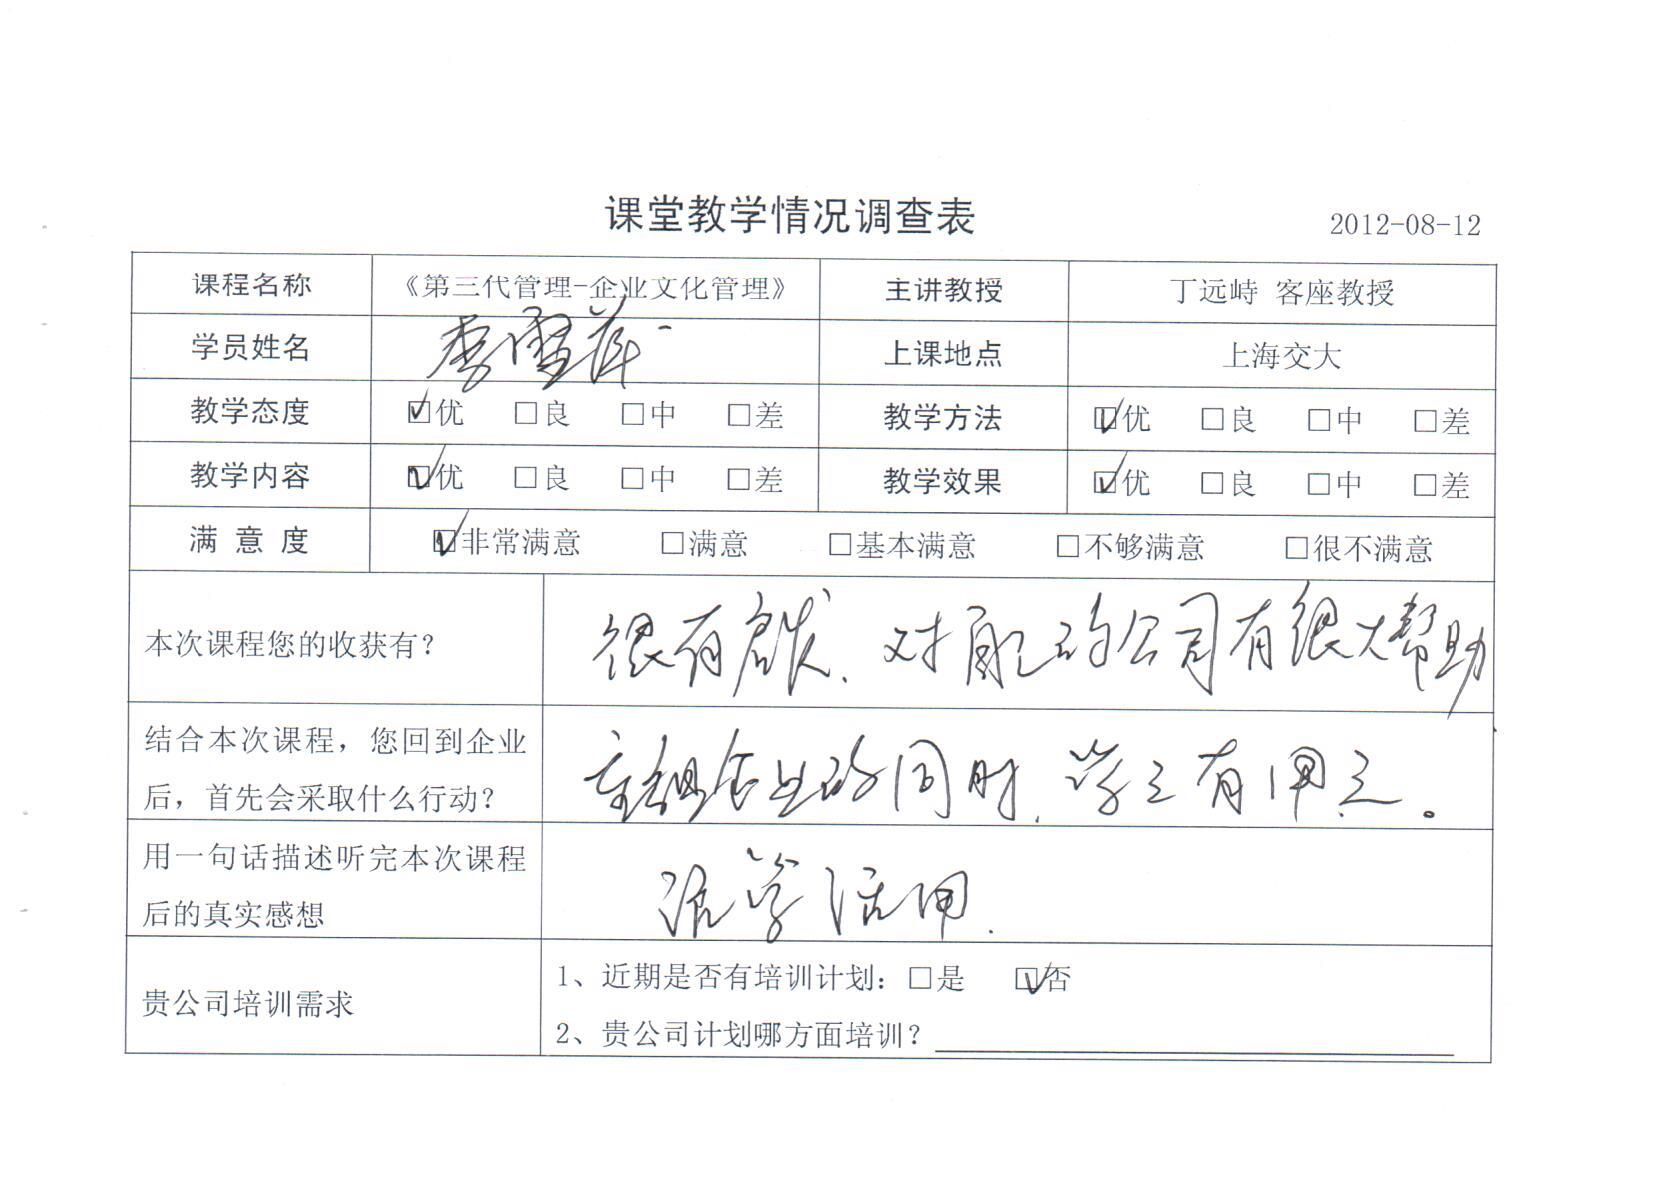 课堂教学情况调查表
2012-08-12
课程名称 《第三代管理-企业文化管理》 主讲教授 丁远峙 客座教授
学员姓名 李雪萍 上课地点 上海交大
教学态度 ☑优 □良 □中 □差 教学方法 ☑优 □良 □中 □差
教学内容 ☑优 □良 □中 □差 教学效果 ☑优 □良 □中 □差
满 意 度 ☑非常满意 □满意 □基本满意 □不够满意 □很不满意
本次课程您的收获有? 很有启发、对自己的公司有很大帮助
结合本次课程，您回到企业
后，首先会采取什么行动? 重组企业的同时、学之有用之。
用一句话描述听完本次课程
后的真实感想 活学活用.
贵公司培训需求
1、近期是否有培训计划: □是 ☑否
2、贵公司计划哪方面培训?